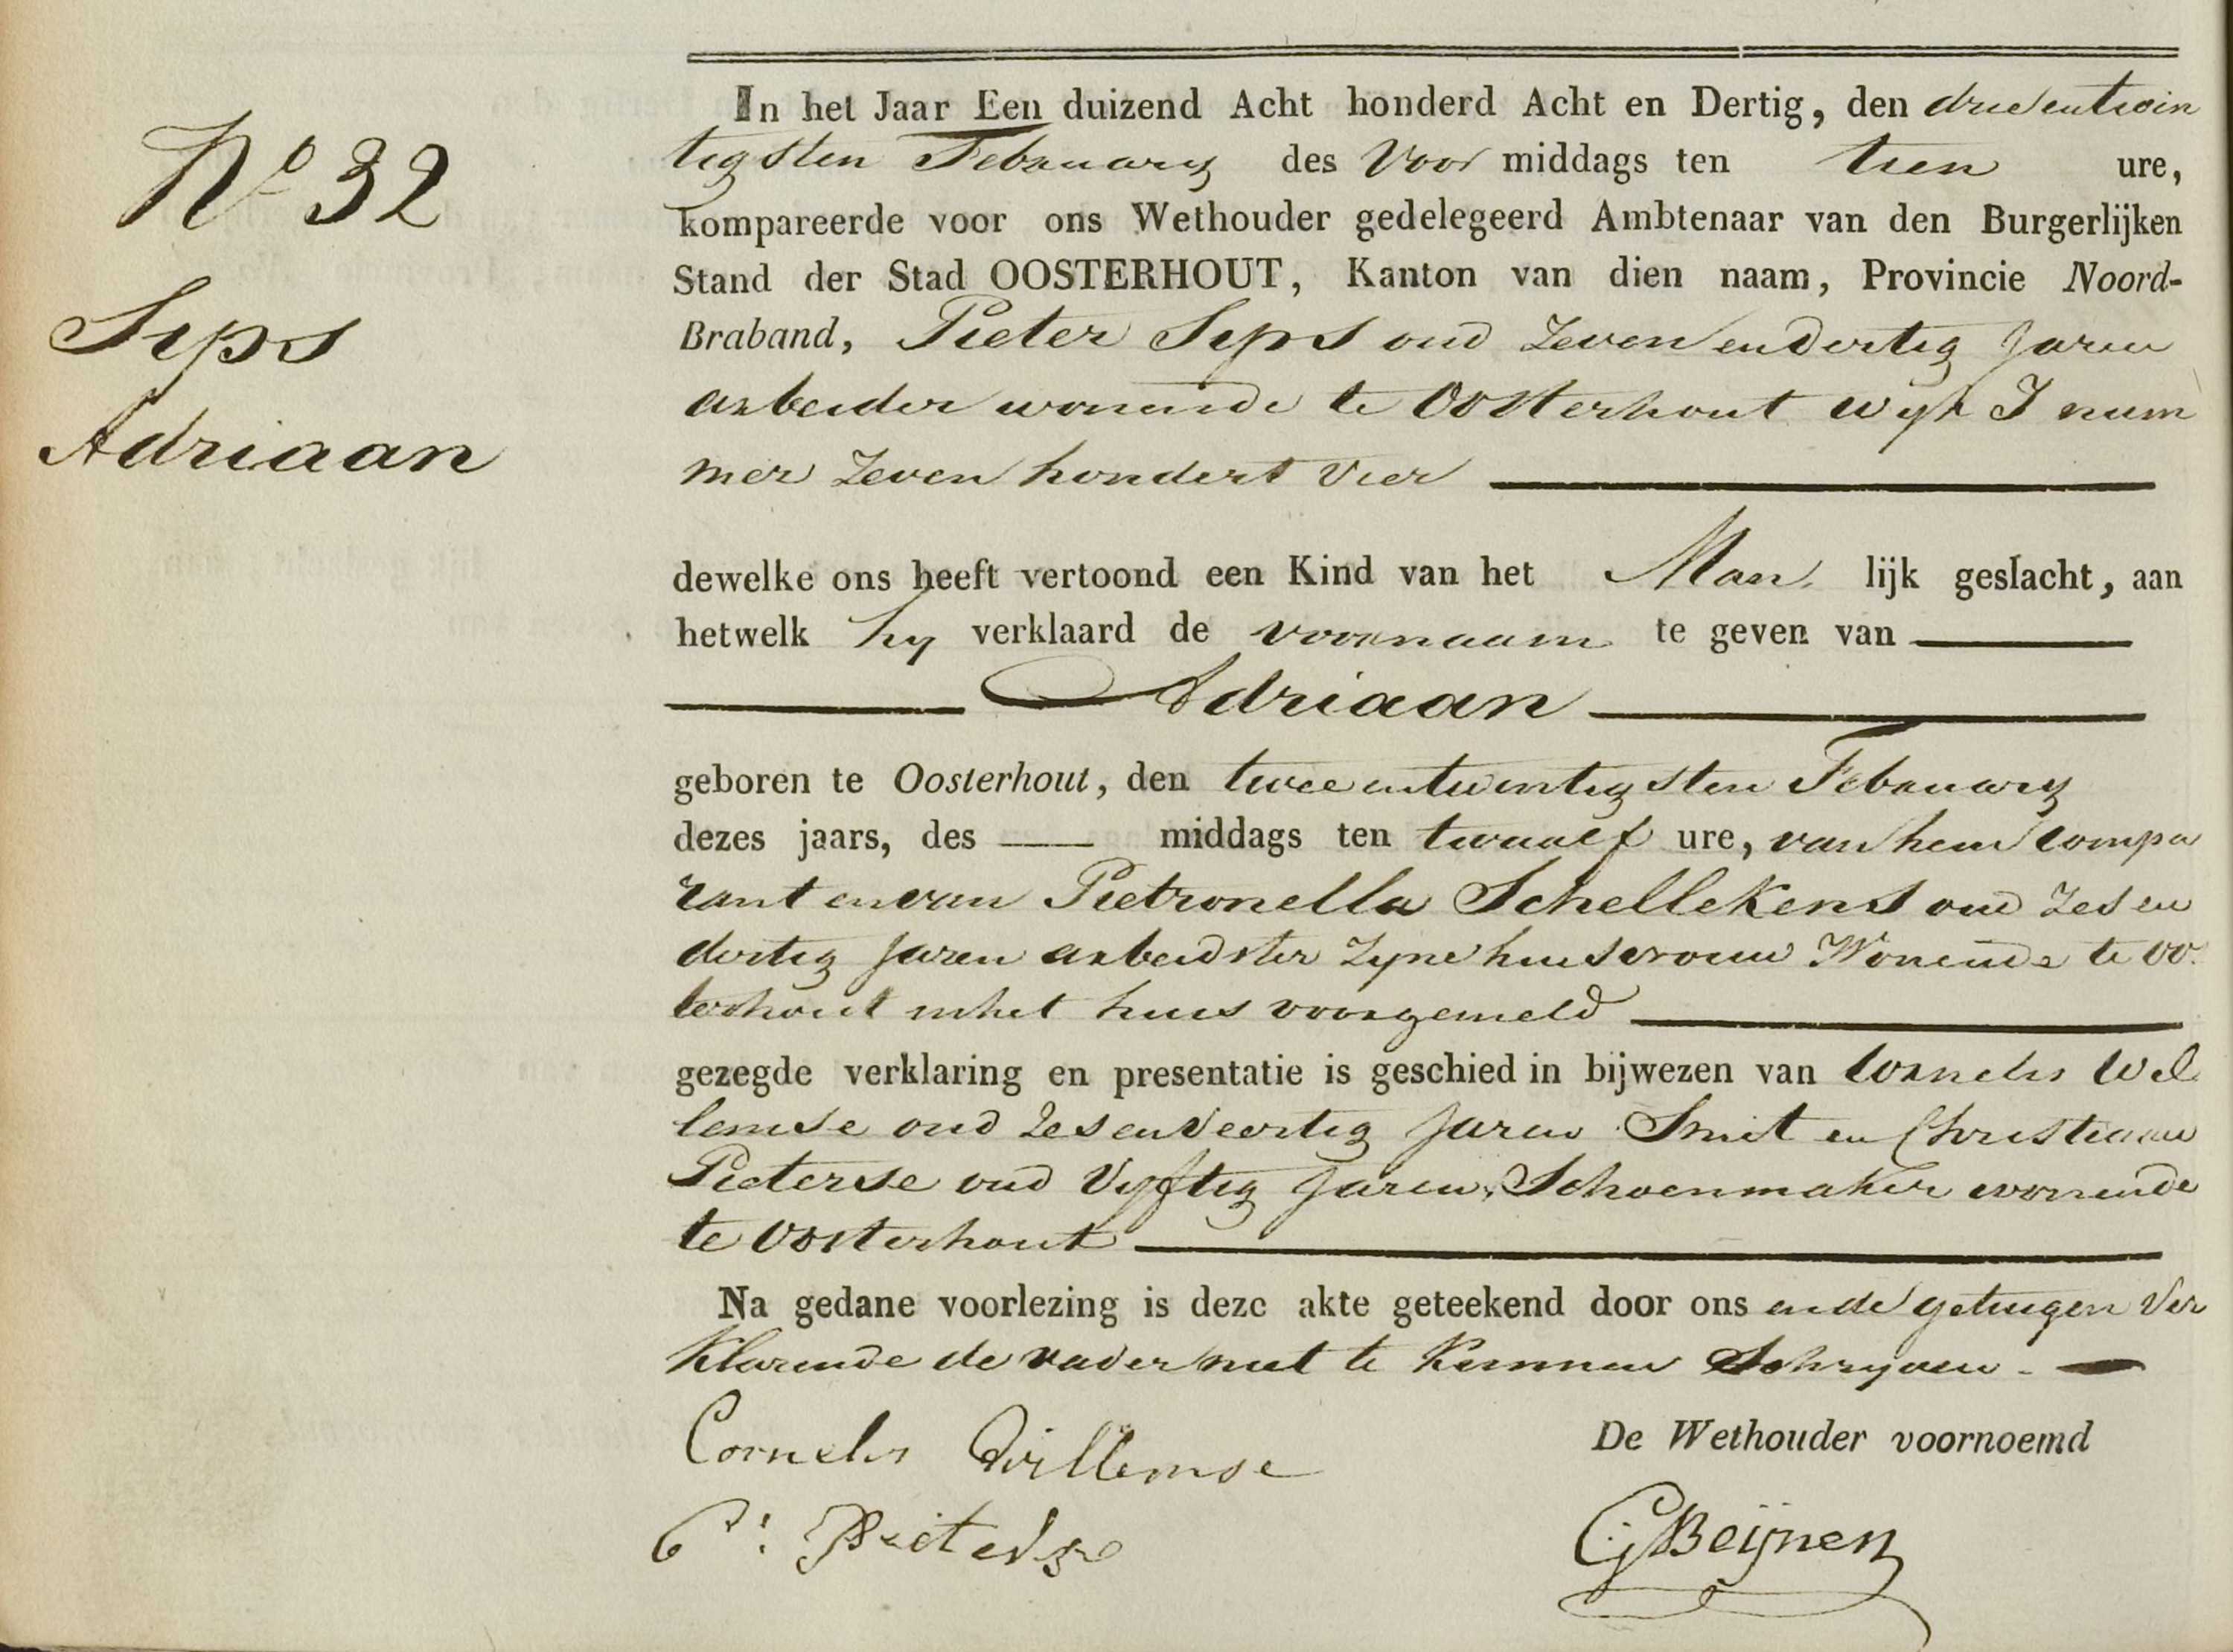 No 32
Seps
Adriaan
In het Jaar Een duizend Acht honderd Acht en Dertig, den drieentwin
tigsten February des Voor middags ten tien ure,
kompareerde voor ons Wethouder gedelegeerd Ambtenaar van den Burgerlijken
Stand der Stad OOSTERHOUT, Kanton van dien naam, Provincie Noord-
Braband, Pieter Seps oud Zeven en dertig Jaren
arbeider wonende te Oosterhout wyk I num
mer Zeven hondert vier
dewelke ons heeft vertoond een Kind van het Man lijk geslacht, aan
hetwelk hy verklaard de voornaam te geven van
Adriaan
geboren te Oosterhout, den twee entwintigsten February
dezes jaars, des middags ten twaalf ure, van hem Compa
rant en van Pietronella Schellekens oud Zes en
dertig Jaren arbeidster Zyne huisvrouw Wonende te Oo
terhout in het huis voorgemeld
gezegde verklaring en presentatie is geschied in bijwezen van Cornelis Wil
lemse oud Zes en Veertig Jaren Smit en Christiaan
Pieterse oud Vyftig Jaren Schoenmaker wonende
te Oosterhout
Na gedane voorlezing is deze akte geteekend door ons en de getuigen Ver
klarende de vader niet te kunnen Schryven.
Cornelis Willemse
De Wethouder voornoemd
C: Pieterse
CJBeijnen